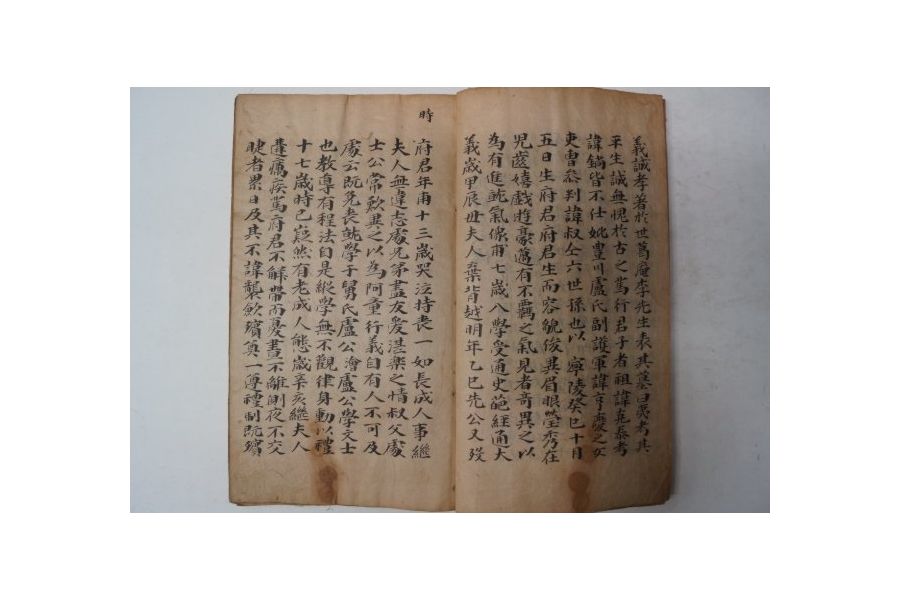 義誠孝著於世葛庵李先生表其墓曰夷考其
平生誠無愧於古之篤行君子者祖諱堯泰考
諱鎬皆不仕妣豊川盧氏副護軍諱亨夔之女
吏曹叅判諱叔仝六世孫也以 寧陵癸巳十月
五日生府君府君生而容貌俊異眉眼瑩秀在
児齒嬉戱逰豪邁有不覊之氣見者奇異之以
為有進就氣像甫七歲入學受通史葩経通大
義歲甲辰丗夫人棄背越明年乙巳先公又歿
時
府君年甫十三歲哭泣持喪一如長成人事継
夫人無違志處兄第盡友愛湛樂之情叔父處
士公常歎異之以為阿童行義自有人不可及
處云既免喪就學于舅氏盧公澮盧公學文士
也教導有程法自是縱學無不觀律身動以禮
十七歲時已嶷然有老成人態歲辛亥継夫人
遘癘疾篤府君不觧帶而憂晝不離側夜不交
睫者累日及其不諱襲歛殯奠一遵禮制既殯